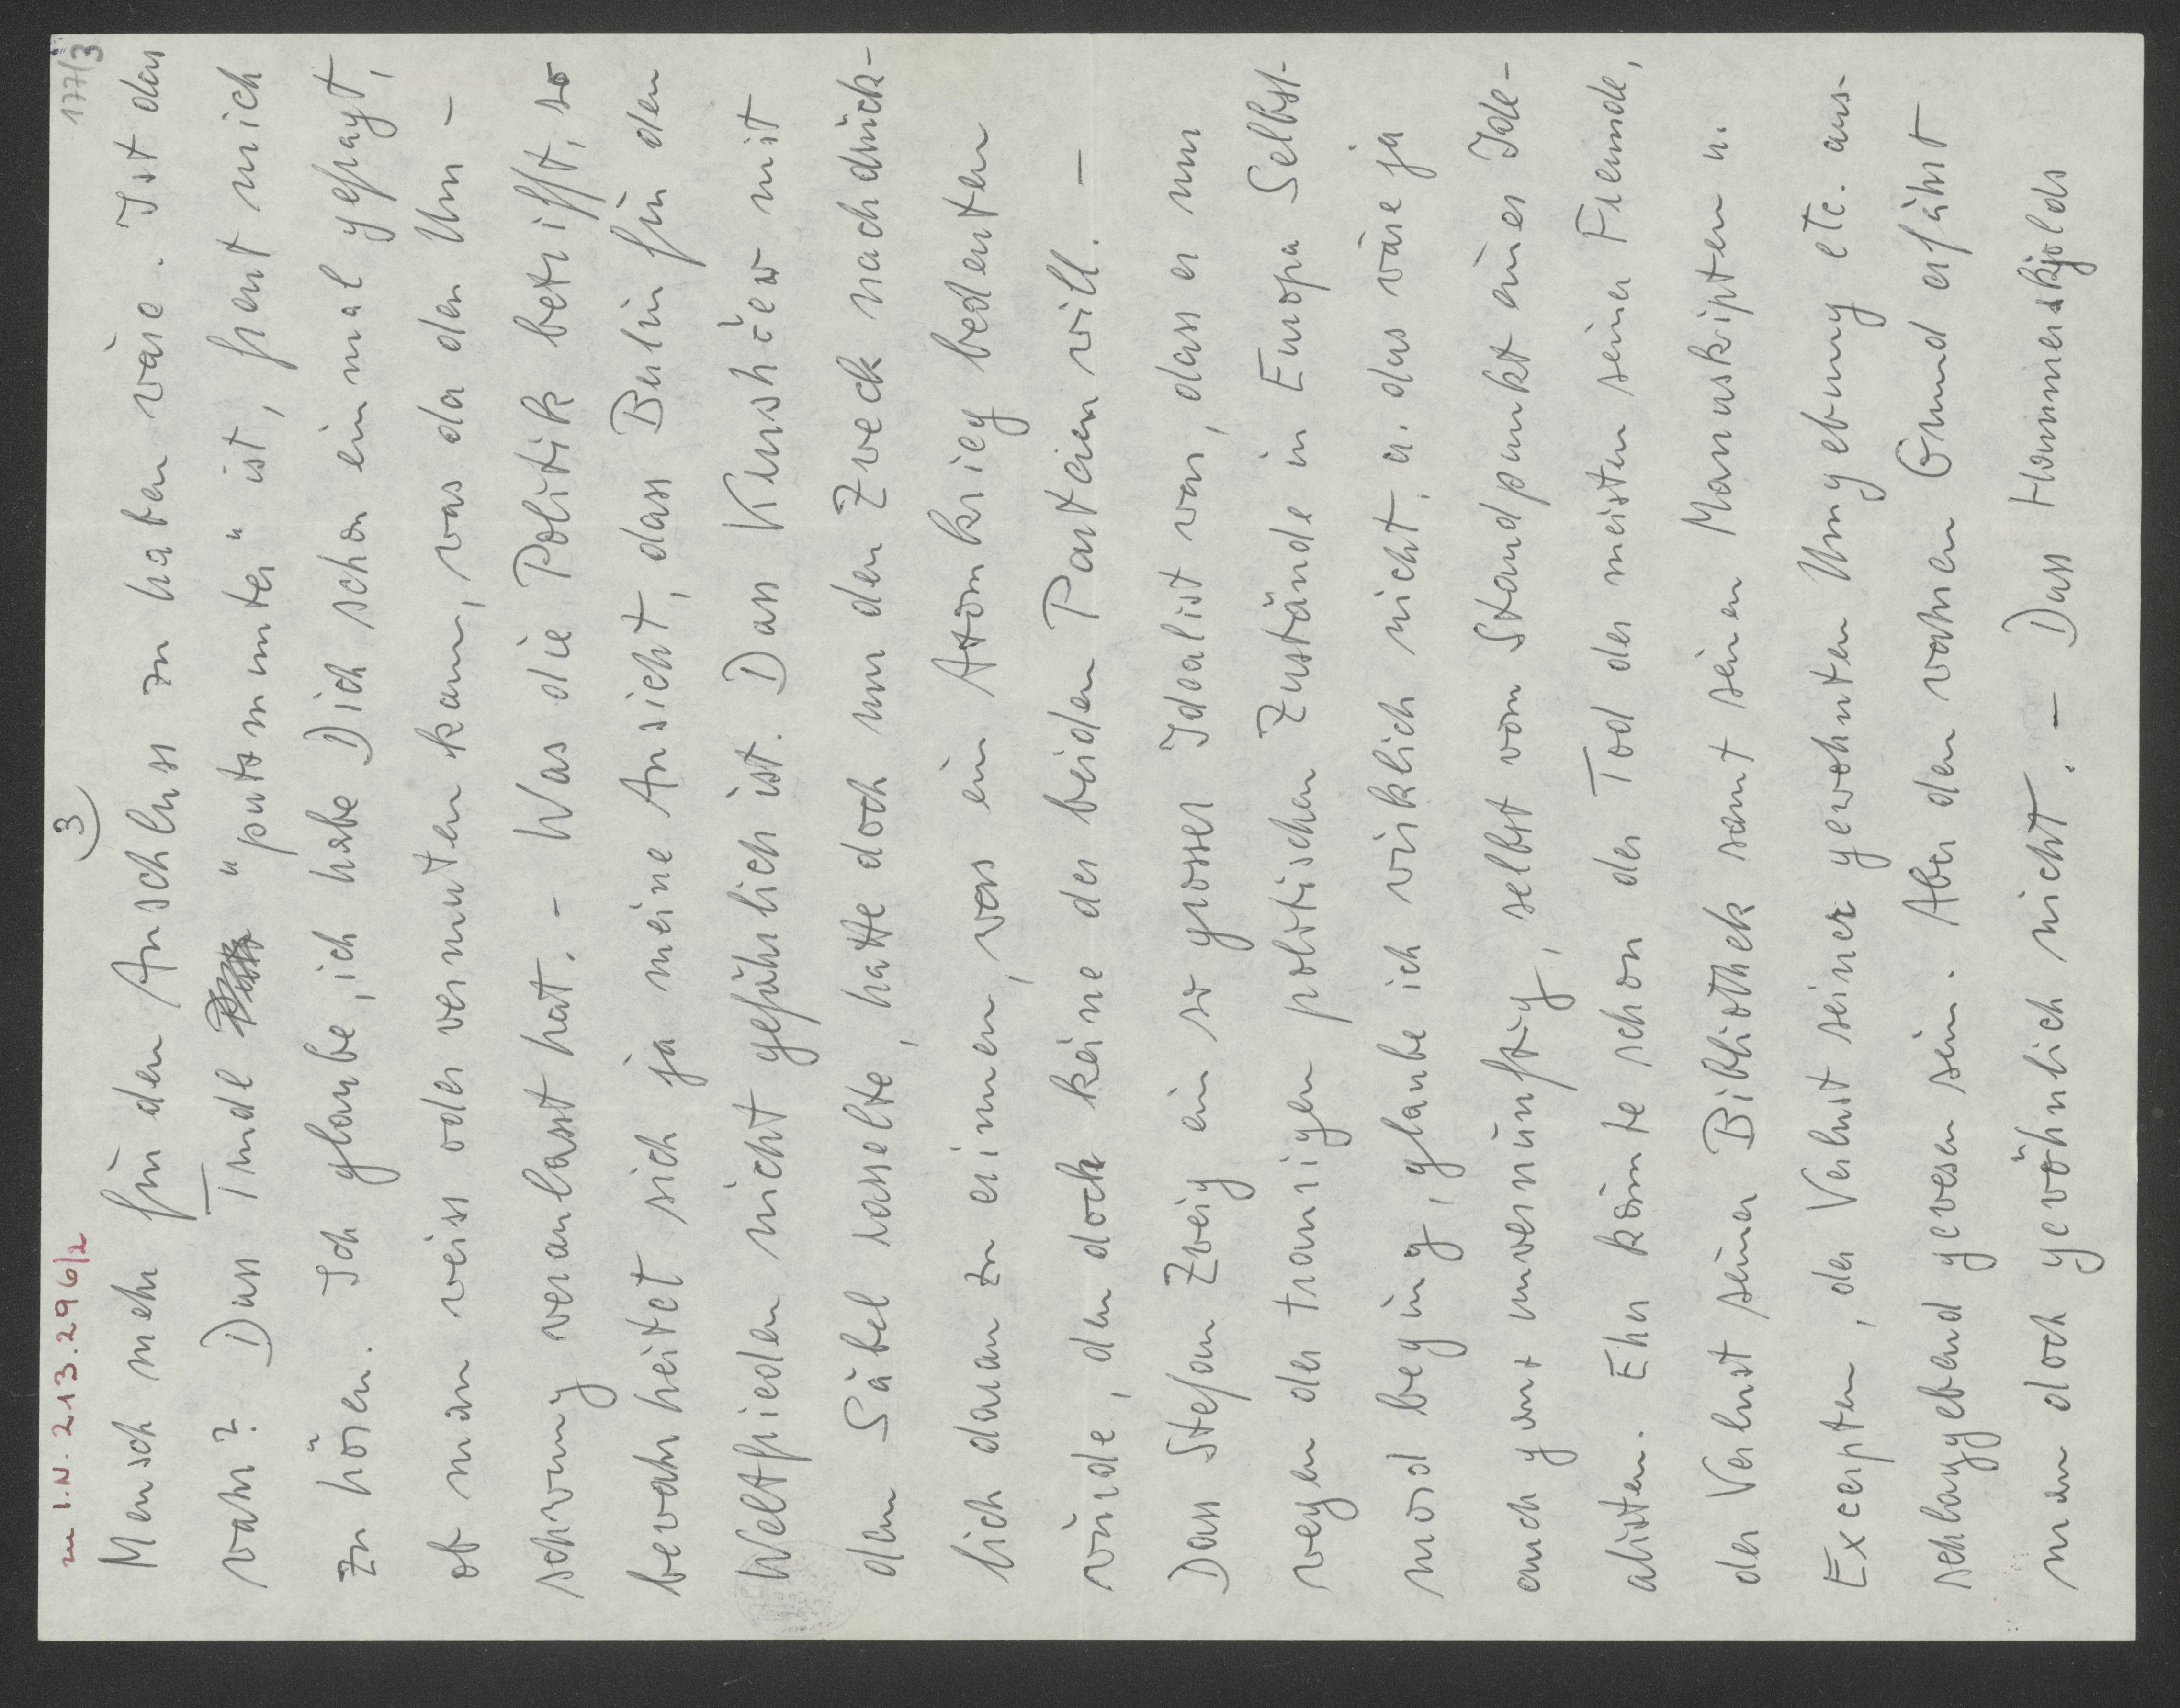 zu I.N. 213.296/2
3
177/3
Mensch mehr für den Anschluss zu haben wäre. Ist das
wahr? Dass Trudl "putzmunter" ist, freut mich
zu hören. Ich glaube, ich habe Dich schon einmal gefragt,
ob man weiss oder vermuten kann, was da den Um-
schwung veranlasst hat. - Was die Politik betrifft, so
bewahrheitet sich ja meine Ansicht, dass Berlin für den
Weltfrieden nicht gefährlich ist. Dass Kruschčew mit
dem Säbel rasselte, hatte doch nur den Zweck nachdrück-
lich daran zu erinnern, was ein Atomkrieg bedeuten
würde, den doch keine der beiden Parteien will. -
Dass Stefan Zweig ein so grosser Idealist war, dass er nur
wegen der traurigen politischen Zustände in Europa Selbst-
mord beging, glaube ich wirklich nicht, u. das wäre ja
auch ganz unvernünftig, selbst vom Standpunkt eines Ide-
alisten. Eher könnte schon der Tod der meisten seiner Freunde,
der Verlust seiner Bibliothek samt seinen Manuskripten u.
Excerpten, der Verlust seiner gewohnten Umgebung etc. aus-
schlaggebend gewesen sein. Aber den wahren Grund erfährt
man doch gewöhnlich nicht. - Dass Hammerskjolds